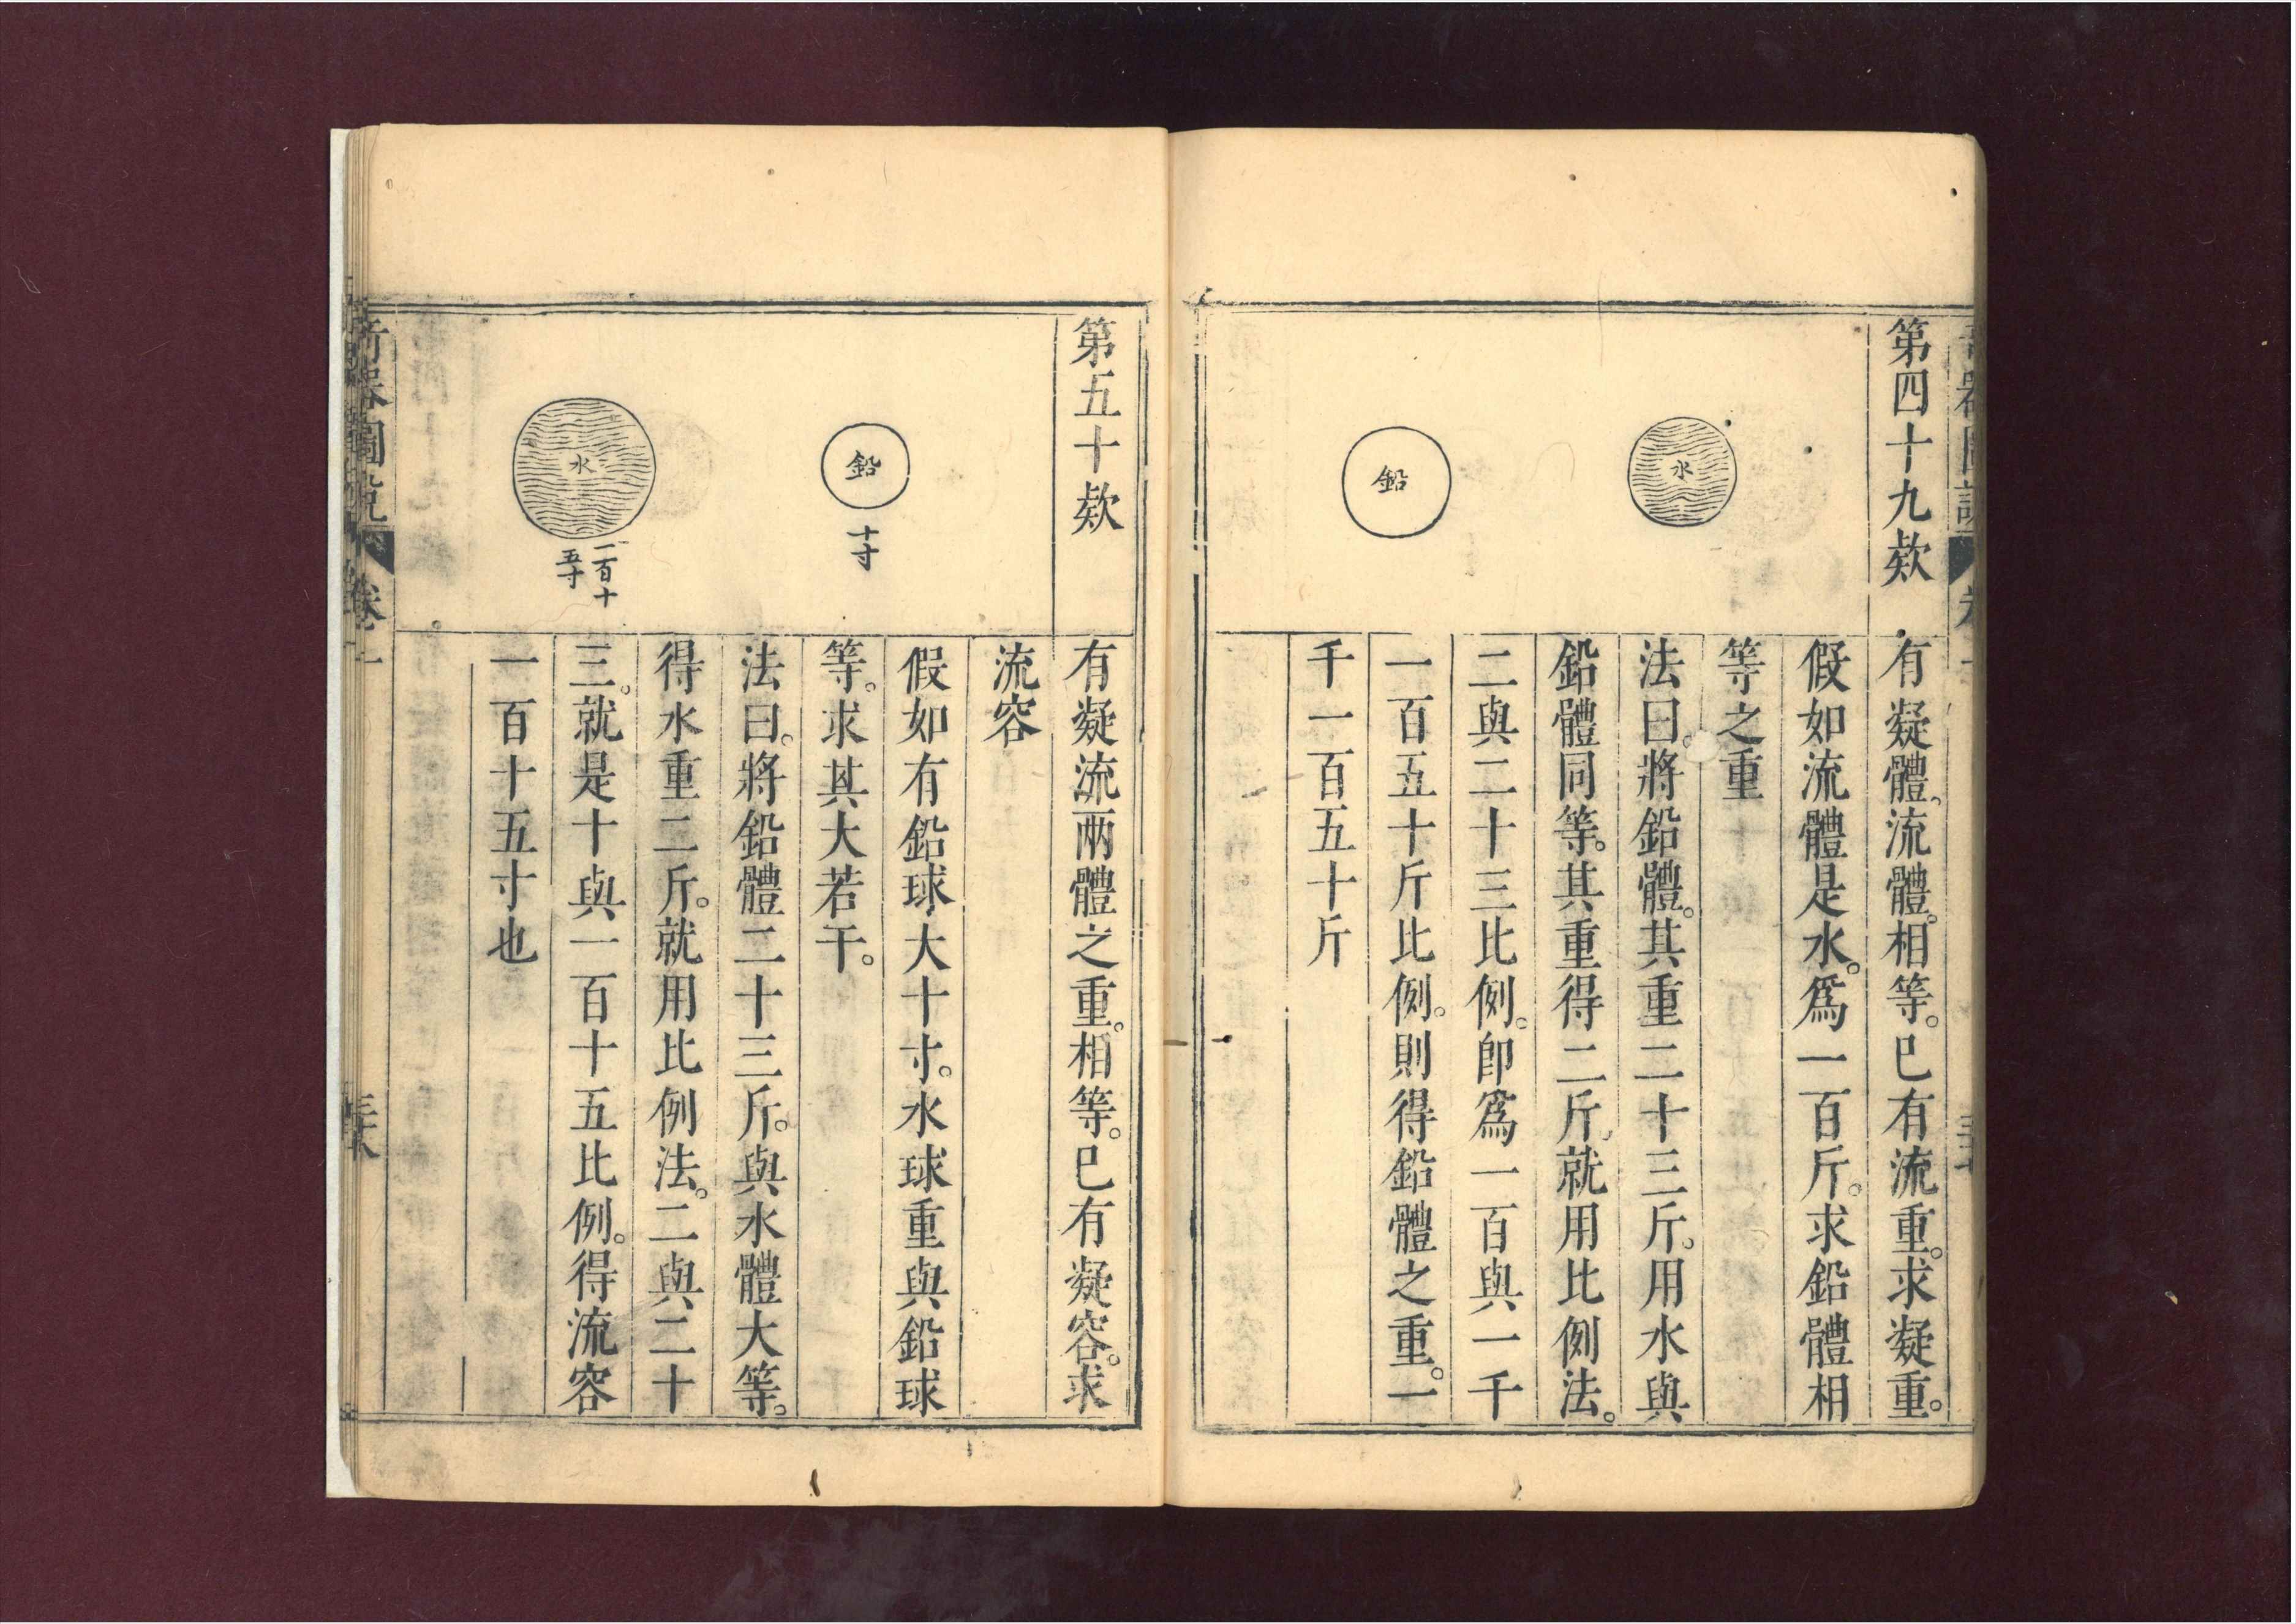 第四十九欵
水
鉛
有凝體、流體。相等。已有流重。求凝重。
假如流體是水。爲一百斤。求鉛體相
等之重
法曰。將鉛體。其重二十三斤。用水與
鉛體同等。其重得二斤、就用比例法。
二與二十三比例。卽爲一百與一千
一百五十斤比例。則得鉛體之重。一
千一百五十斤
第五十欵
鉛
十寸
水
一百十
五寸
有凝流兩體之重。相等。已有凝容。求
流容
假如有鉛球大十寸。水球重與鉛球
等。求其大若干。
法曰。將鉛體二十三斤。與水體大等。
得水重二斤。就用比例法。二與二十
三。就是十與一百十五比例。得流容
一百十五寸也
奇器圖說 卷一